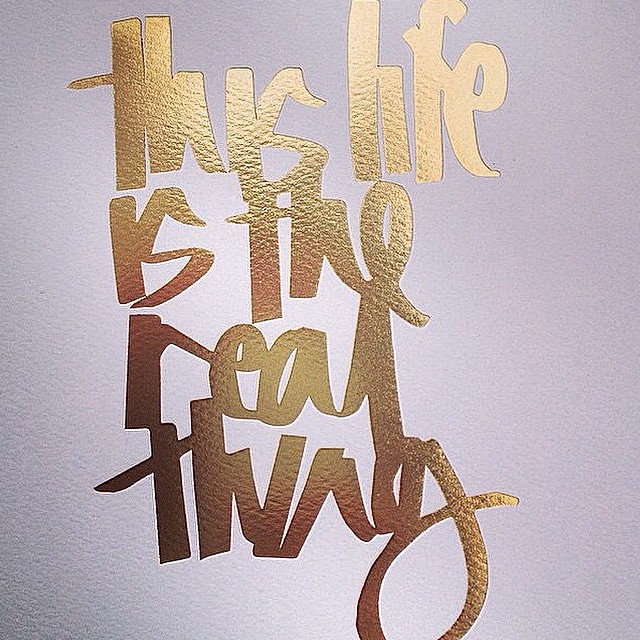 this life
is the
real
thing